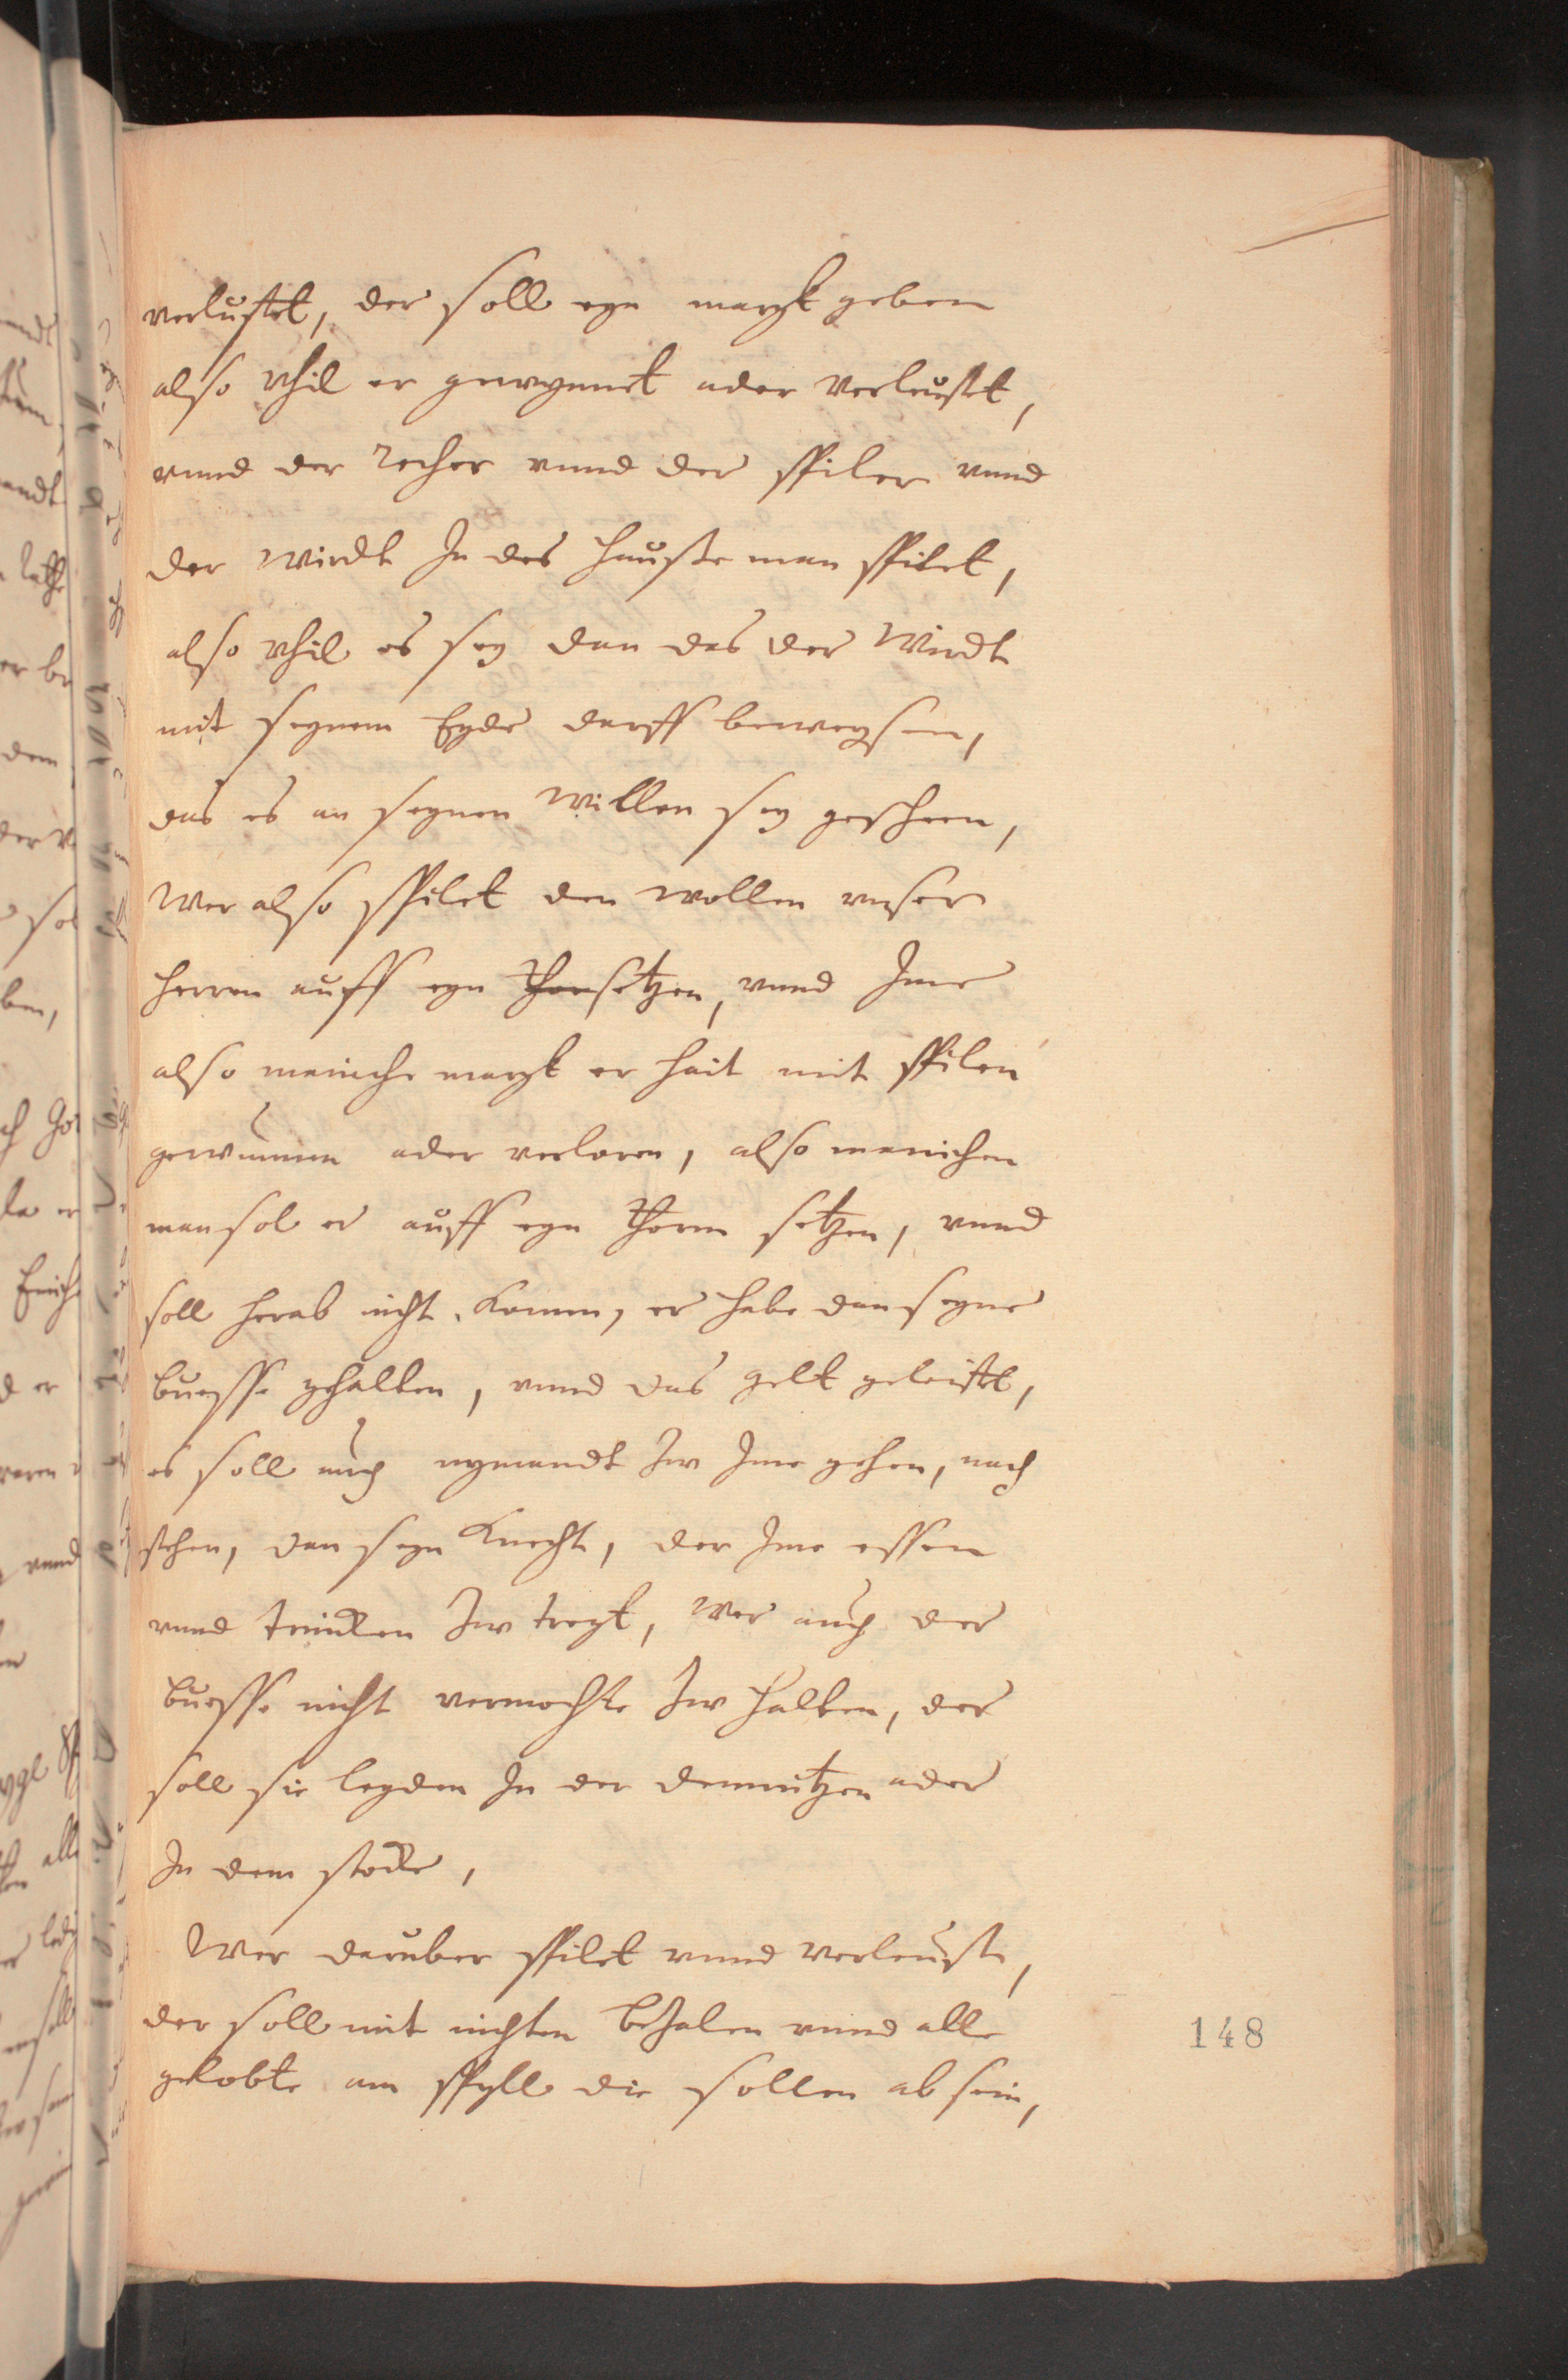 verlustet, der soll eyn margk geben
also vhil er gewynnet ader verleustet,
vnnd der Zecher vnnd der spiler vnnd
der wirdt In des Hauße man spilet,
also vhil es sey dan das der Wirdt
mit seynem Eyde darff beweysen,
das es an seynen willen sey gescheen,
Wer also spilet den wollen vnser
Herren auff eyn Thor setzen, vnnd Ime
also maniche margk er hait mit spilen
gewunnen ader verloren, also manichen
man sol er auff eyn thorm setzen, vnnd
soll herab nicht komen, er habe dan seyne
buesse gehalten, vnnd das gelt geleistet,
es soll auch nymandt Zw Ime gehen, nach
sehen, dan seyn Knecht, der Ime essen
vnnd trincken Zw tregt, Wer auch der
buesse nicht vermochte Zw halten, der
soll sie leyden In der demnitzen ader
In dem stocke,
Wer daruber spilet vnnd verleust,
der soll mit nichten bezalen vnnd alle
gelobte am spyll die sollen ab sein,
148